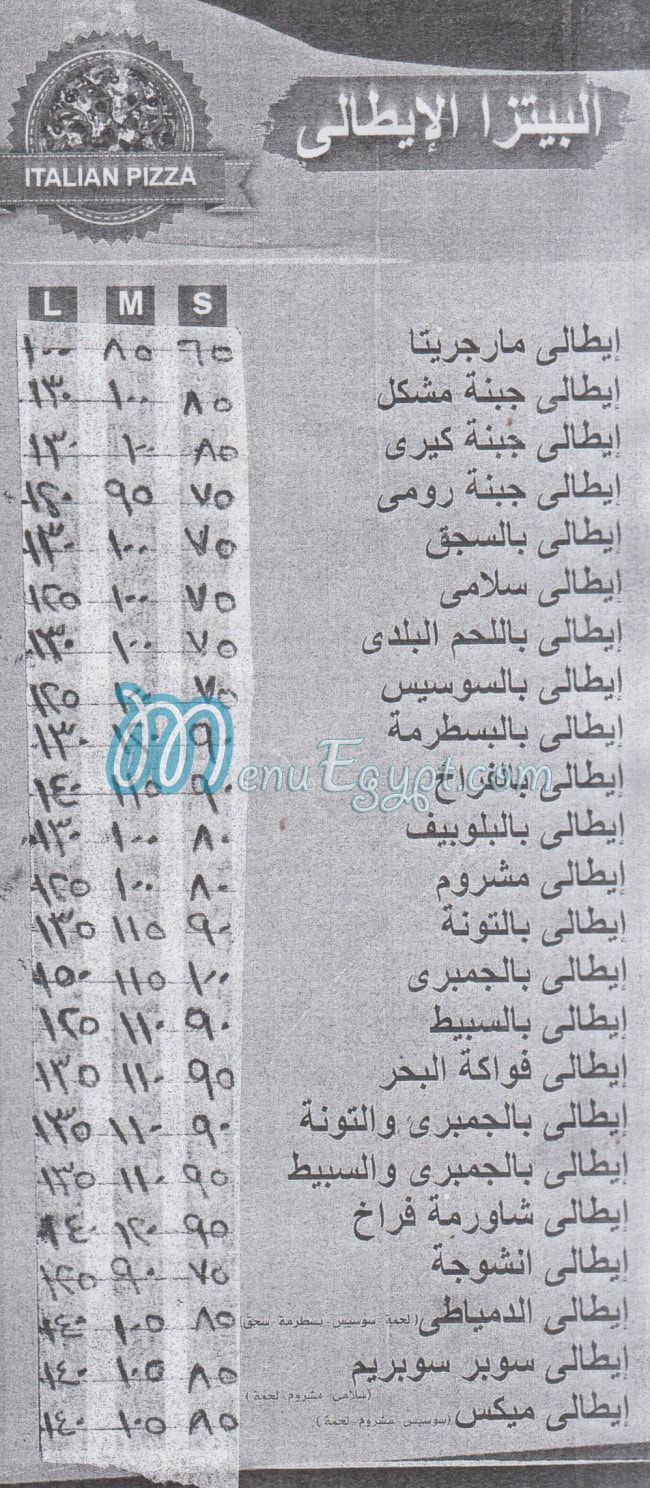 البيتزا الإيطالى
ITALIAN PIZZA
S M L
إيطالى مارجريتا ٦٥ ٨٥ ١٠٠
إيطالى جبنة مشكل ٨٥ ١٠٠ ١٣٠
إيطالى جبنة كيرى ٨٥ ١٠٠ ١٣٠
إيطالى جبنة رومى ٧٥ ٩٥
إيطالى بالسجق ٧٥ ١٠٠ ١٣٠
إيطالى سلامى ٧٥ ١٠٠ ١٢٥
إيطالى باللحم البلدى ٧٥ ١٠٠ ١٣٠
إيطالى بالسوسيس ٧٥ ١٢٥
إيطالى بالبسطرمة ٩٠ ١٣٠
إيطالى بالفراخ ٩٠ ١١٥ ١٤٠
إيطالى بالبلوبيف ٨٠ ١٠٠ ١٣٠
إيطالى مشروم ٨٠ ١٠٠ ١٢٥
إيطالى بالتونة ٩٠ ١١٥ ١٣٥
إيطالى بالجمبرى ١٠٠ ١١٥ ١٥٠
إيطالى بالسبيط ٩٠ ١١٠ ١٢٥
إيطالى فواكة البحر ٩٥ ١١٠ ١٣٥
إيطالى بالجمبرى والتونة ٩٠ ١١٠ ١٣٥
إيطالى بالجمبرى والسبيط ٩٥ ١١٠ ١٣٥
إيطالى شاورمة فراخ ٩٥ ١٢٠ ١٤٠
إيطالى انشوجة ٧٥ ٩٠ ١٢٥
إيطالى الدمياطى (لحمة سوسيس بسطرمة سجق) ٨٥ ١٠٥ ١٤٠
إيطالى سوبر سوبريم ٨٥ ١٠٥ ١٤٠
(سلامى مشروم لحمة)
إيطالى ميكس (سوسيس مشروم لحمة) ٨٥ ١٠٥ ١٤٠
MenuEgypt.com